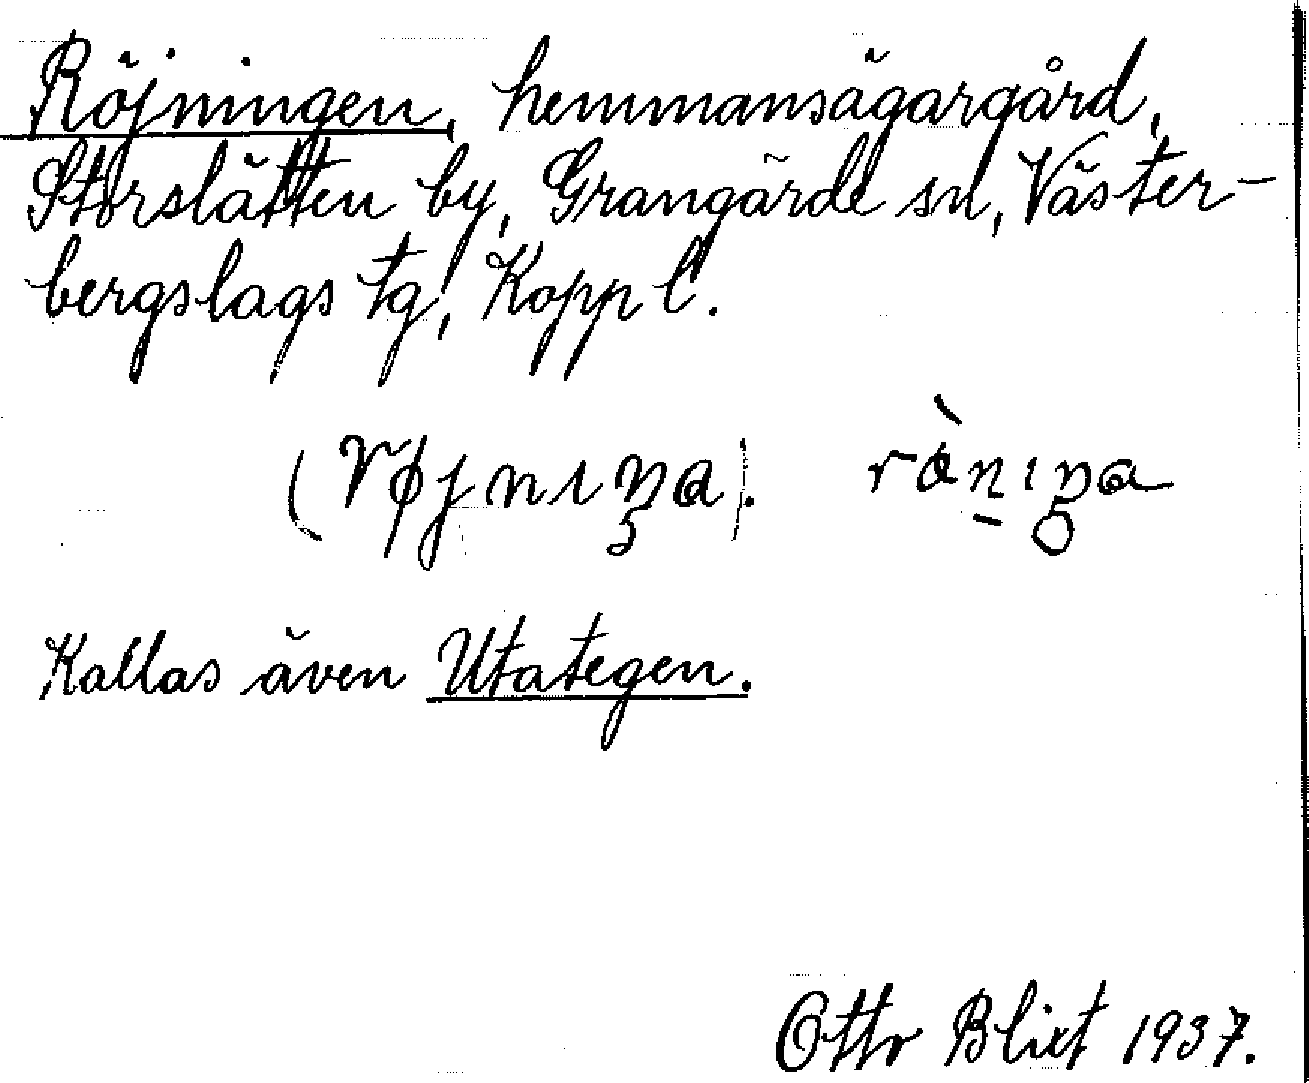 Röjningen, hemmansägargård,
Storslätten by, Grangärde sn, Väster-
bergslags tg, Kopp l.
(røjnıŋa). rànıŋa
Kallas även Utategen.
Otto Blixt 1937.